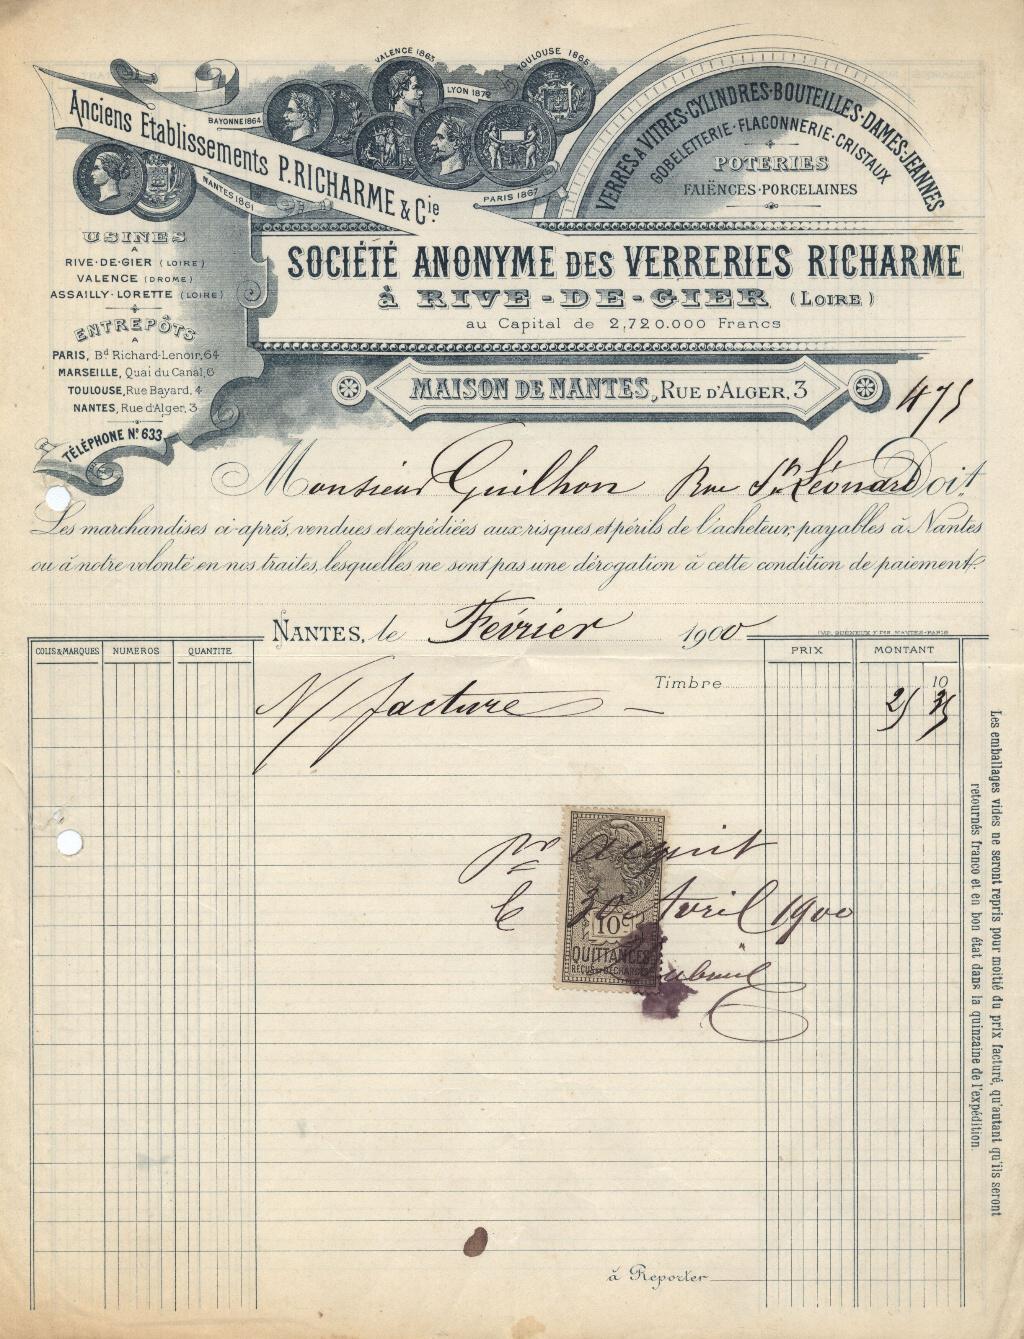 VALENCE 1863
TOULOUSE 1865
LYON 1872
BAYONNE 1864
Anciens Etablissements P. RICHARME & Cie
NANTES 1861
PARIS 1867
VERRES A VITRES-CYLINDRES-BOUTEILLES-DAMES-JEANNES
GOBELETTERIE-FLACONNERIE-CRISTAUX
POTERIES
FAIËNCES-PORCELAINES
USINES
A
RIVE-DE-GIER (LOIRE)
VALENCE (DROME)
ASSAILLY-LORETTE (LOIRE)
ENTREPÔTS
A
PARIS, Bd Richard-Lenoir, 64
MARSEILLE, Quai du Canal, 6
TOULOUSE, Rue Bayard, 4
NANTES, Rue d'Alger, 3
TÉLÉPHONE No 633
SOCIÉTÉ ANONYME DES VERRERIES RICHARME
à RIVE-DE-GIER (LOIRE)
au Capital de 2,720.000 Francs
MAISON DE NANTES, RUE D'ALGER, 3
475
Monsieur Guilhon Rue St Léonard Doit
Les marchandises ci-après, vendues et expédiées aux risques et périls de l'acheteur, payables à Nantes
ou à notre volonté en nos traites, lesquelles ne sont pas une dérogation à cette condition de paiement.
NANTES, le Février 1900
COLIS & MARQUES NUMEROS QUANTITE PRIX MONTANT
Timbre 10
N/ facture 25 35
pr acquit
le 30 Avril 1900
10c
QUITTANCES
REÇUS ET DÉCHARGES
à Reporter
Les emballages vides ne seront repris pour moitié du prix facturé, qu'autant qu'ils seront
retournés franco et en bon état dans la quinzaine de l'expédition